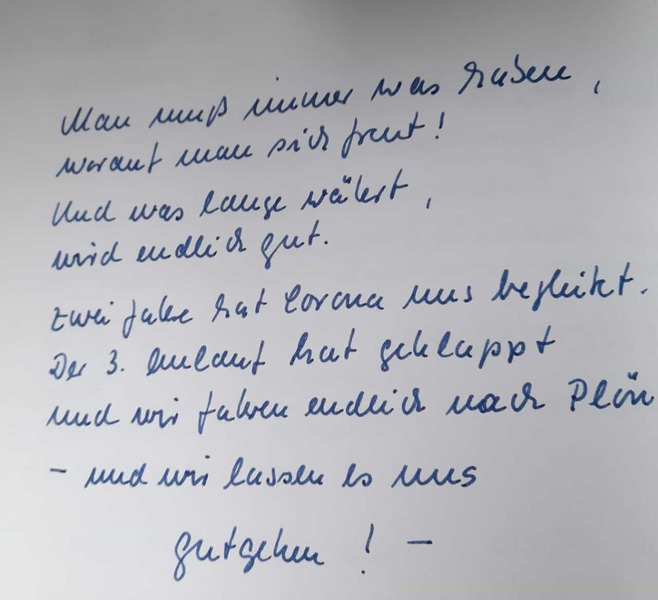 Man muß immer was haben,
worauf man sich freut!
Und was lange währt,
wird endlich gut.
Zwei Jahre hat Corona uns begleitet.
Der 3. Anlauf hat geklappt
und wir fahren endlich nach Plön
- und wir lassen es uns
gutgehen! -